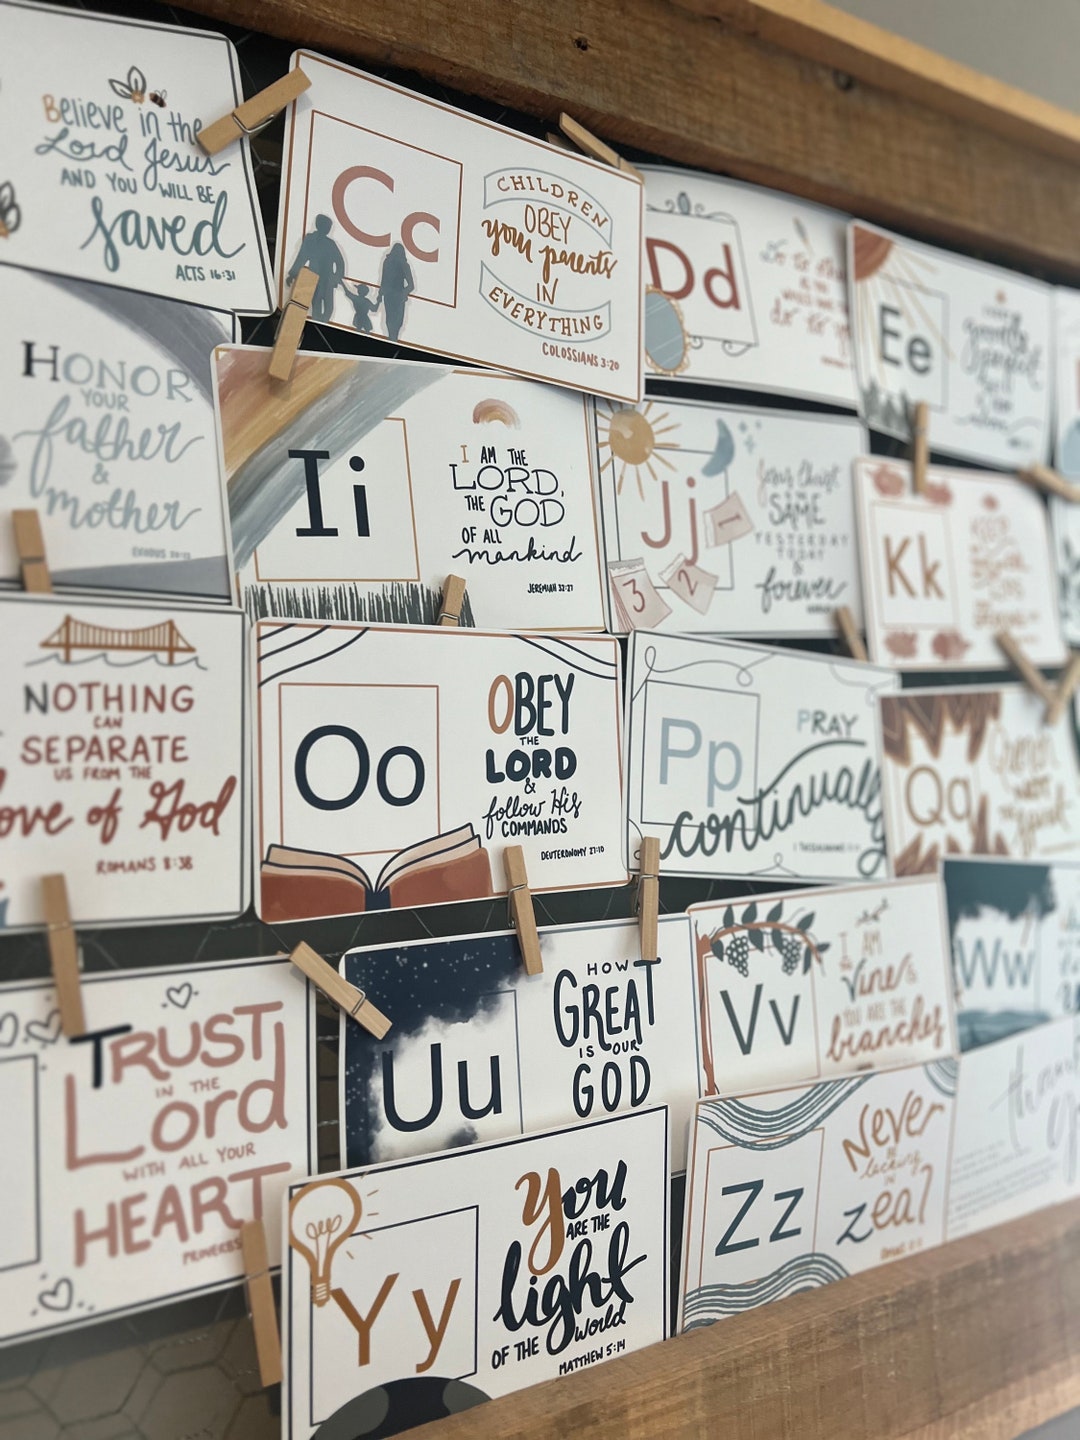 Believe in the
Lord Jesus
AND YOU WILL BE
saved
ACTS 16:31
Cc
CHILDREN
OBEY
your parents
IN
EVERYTHING
COLOSSIANS 3:20
Dd
do to
Ee
HONOR
YOUR
father
&
mother
EXODUS 20:12
Ii
I AM THE
LORD,
THE GOD
OF ALL
mankind
JEREMIAH 32:27
Jj
1
2
3
Jesus Christ
SAME
YESTERDAY
TODAY
&
forever
Kk
KEEP
NOTHING
CAN
SEPARATE
US FROM THE
love of God
ROMANS 8:38
Oo
OBEY
THE
LORD
&
follow His
COMMANDS
DEUTERONOMY 27:10
Pp
PRAY
continually
Qq
Quench
NOT
the Spirit
TRUST
IN THE
Lord
WITH ALL YOUR
HEART
PROVERBS
Uu
HOW
GREAT
IS OUR
GOD
Vv
I AM
the Vine &
YOU ARE THE
branches
Ww
Yy
You
ARE THE
light
OF THE world
MATTHEW 5:14
Zz
Never
BE
lacking
IN
zeal